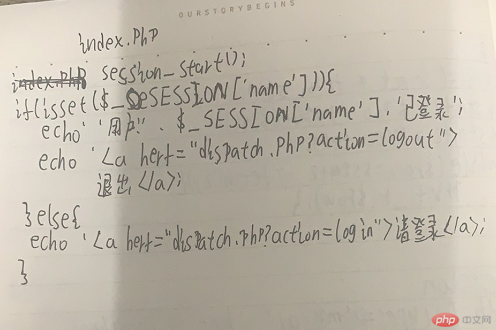 OURSTORYBEGINS
index.PhP
session_start();
if(isset($_SESSION['name'])){
echo '用户'. $_SESSION['name'].'已登录';
echo '<a hert="dispatch.PhP?action=logout">
退出</a>;
}else{
echo '<a hert="dispatch.PhP?action=login">请登录</a>;
}
php 中文网